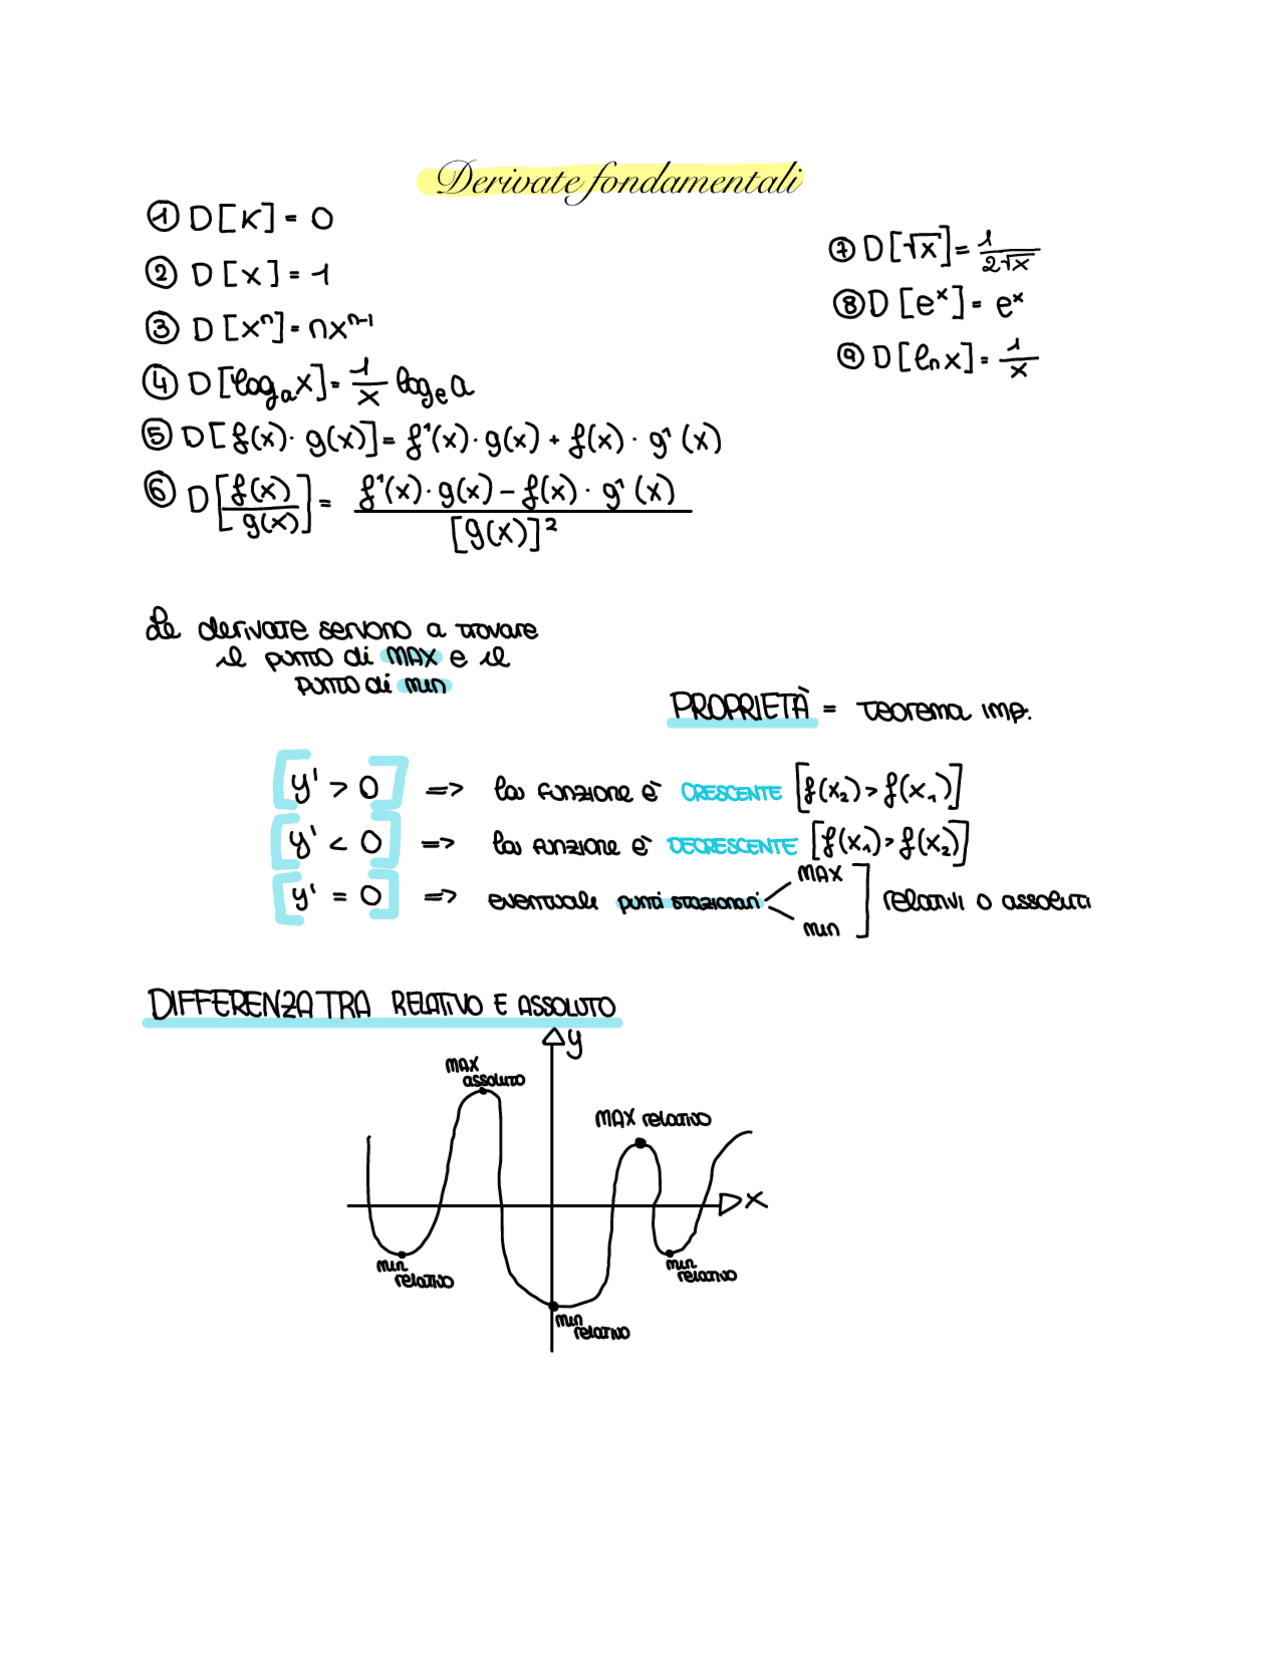 Derivate fondamentali
① D[K] = 0
② D[x] = 1
③ D[xⁿ] = nxⁿ⁻¹
④ D[logₐx] = 1/x logₑa
⑤ D[f(x)·g(x)] = f'(x)·g(x) + f(x)·g'(x)
⑥ D[f(x)/g(x)] = f'(x)·g(x) - f(x)·g'(x) / [g(x)]²
⑦ D[√x] = 1/2√x
⑧ D[eˣ] = eˣ
⑨ D[ln x] = 1/x
Le derivate servono a trovare
il punto di MAX e il
punto di min
PROPRIETÀ = Teorema imp.
[y' > 0] => la funzione è CRESCENTE [f(x₂) > f(x₁)]
[y' < 0] => la funzione è DECRESCENTE [f(x₁) > f(x₂)]
[y' = 0] => eventuali punti stazionari MAX min ] relativi o assoluti
DIFFERENZA TRA RELATIVO E ASSOLUTO
y
MAX
assoluto
MAX relativo
x
min
relativo
min
relativo
min
relativo